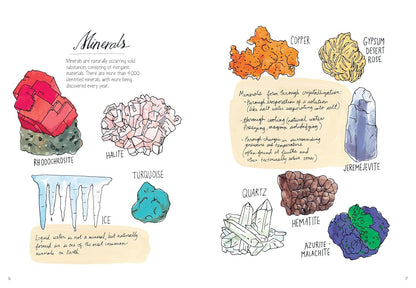 Minerals
Minerals are naturally occurring solid
substances consisting of inorganic
materials. There are more than 4,000
identified minerals, with more being
discovered every year.
RHODOCHROSITE
HALITE
TURQUOISE
ICE
Liquid water is not a mineral, but naturally
formed ice is one of the most common
minerals on Earth.
COPPER
GYPSUM
DESERT
ROSE
Minerals form through crystallization:
• Through evaporation of a solution
(like salt water evaporating into salt)
• Through cooling (natural water
freezing, magma solidifying)
• Through changes in surrounding
pressure and temperature
(often found at faults and
other tectonically active zones)
JEREMEJEVITE
QUARTZ
HEMATITE
AZURITE-
MALACHITE